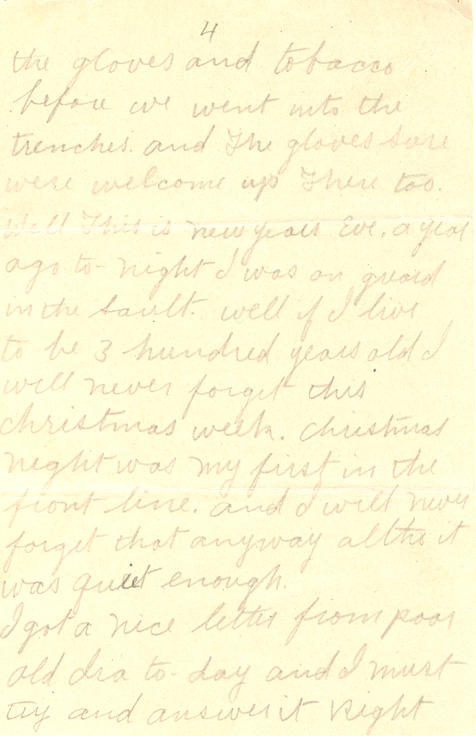 4
the gloves and tobacco
before we went into the
trenches. and The gloves sure
were welcome up There too.
Well This is new years Eve. a year
ago to-night I was on guard
in the Sault. well if I live
to be 3 hundred years old I
will never forget this
christmas week. Christmas
night was my first in the
front line. and I will never
forget that anyway altho it
was quiet enough.
I got a nice letter from poor
old Ira to-day and I must
try and answer it Right